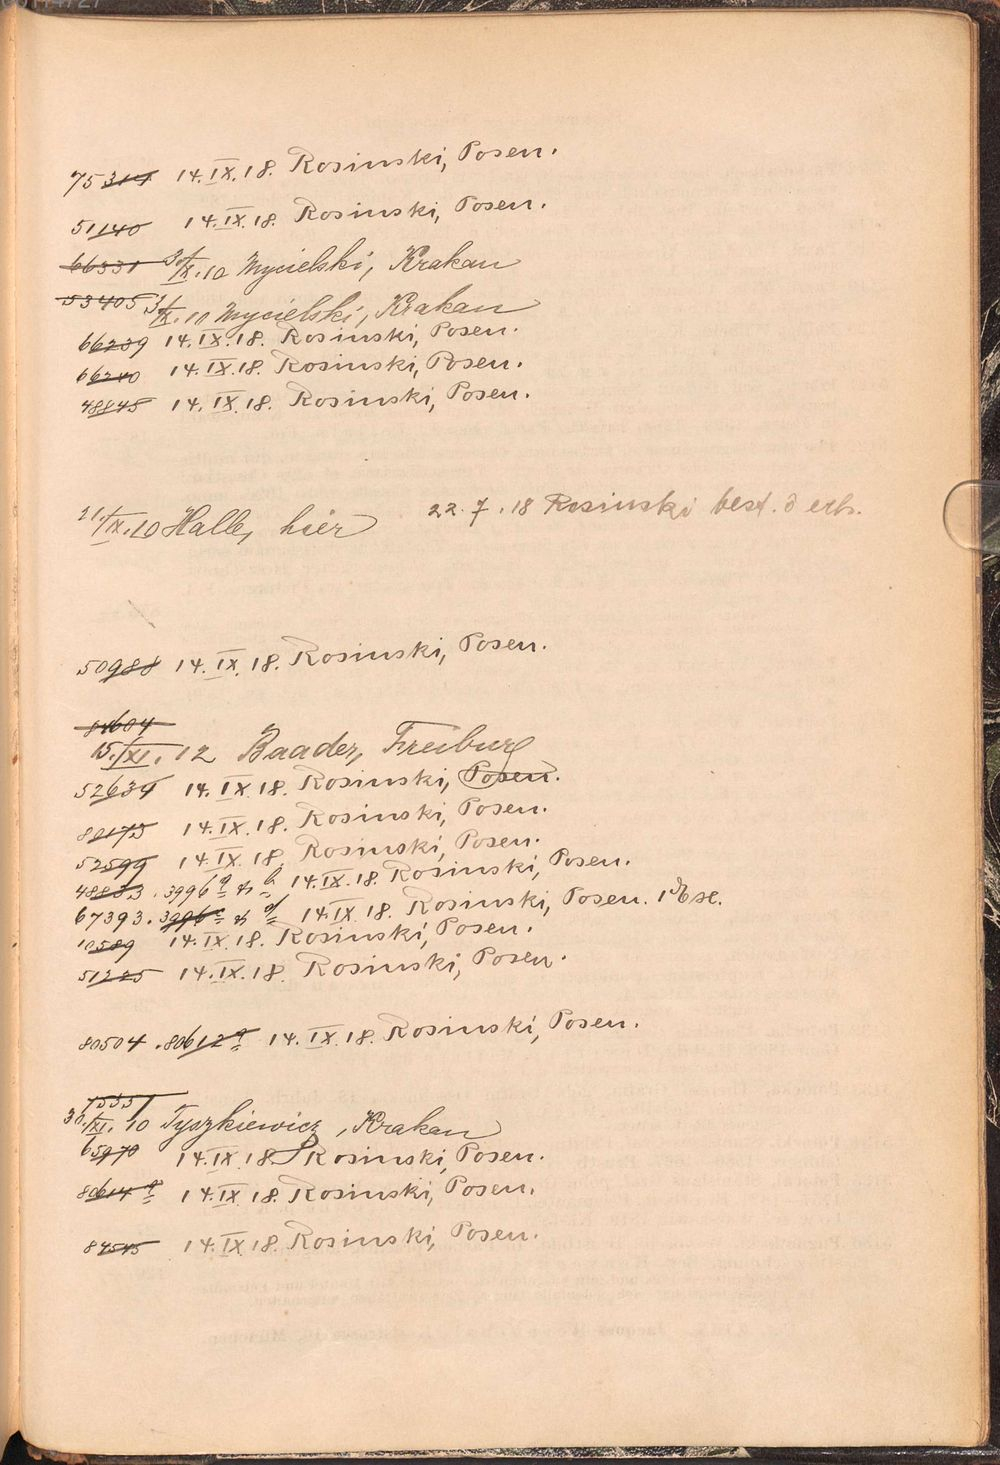 75314 14.IX.18. Rosinski, Posen.
51140 14.IX.18. Rosinski, Posen.
66331 31/IX.10 Mycielski, Krakau
53405 31/IX.10 Mycielski, Krakau
66239 14.IX.18. Rosinski, Posen.
66240 14.IX.18. Rosinski, Posen.
48845 14.IX.18. Rosinski, Posen.
21./IX.10 Halle, hier 22.7.18 Rosinski best. d erb.
50988 14.IX.18. Rosinski, Posen.
84604
15./XI.12 Baader, Freiburg
52634 14.IX.18. Rosinski, Posen.
80173 14.IX.18. Rosinski, Posen.
52599 14.IX.18. Rosinski, Posen.
48883. 3996a & b 14.IX.18. Rosinski, Posen.
67393. 3996c & d 14.IX.18. Rosinski, Posen. 1 Ex.
10589 14.IX.18. Rosinski, Posen.
51225 14.IX.18. Rosinski, Posen.
80504. 80612a 14.IX.18. Rosinski, Posen.
75351
30./XI.10 Tyszkiewicz, Krakau
65970 14.IX.18. Rosinski, Posen.
80614a 14.IX.18. Rosinski, Posen.
84545 14.IX.18. Rosinski, Posen.